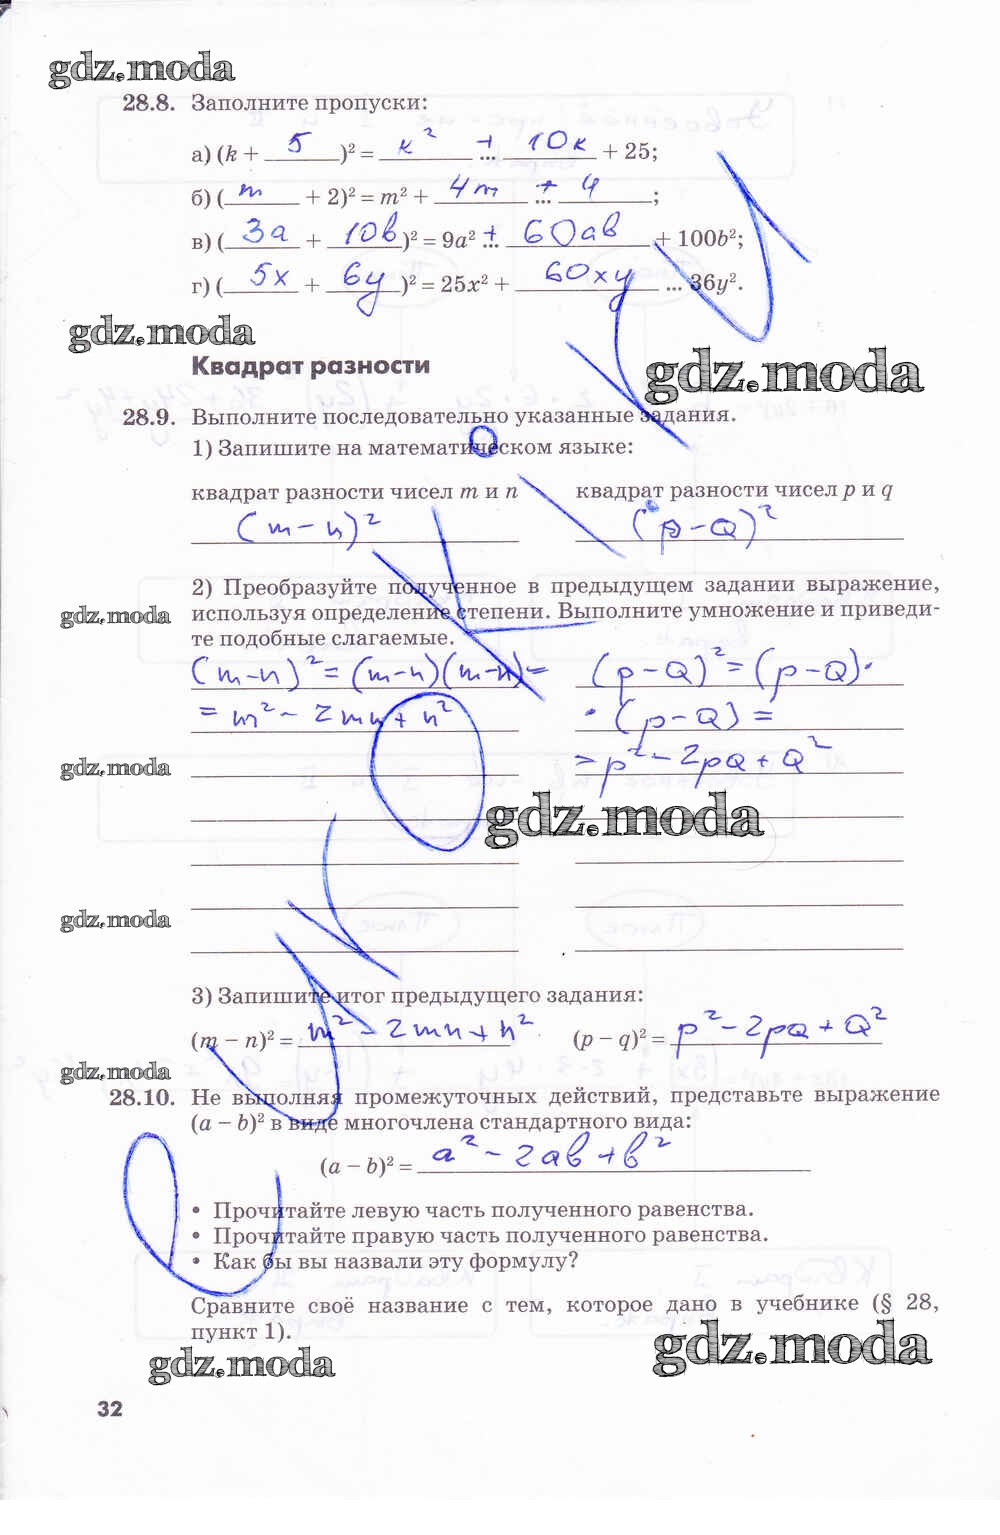 gdz.moda
28.8. Заполните пропуски:
а) (k + 5)² = к² + ... 10к + 25;
б) (m + 2)² = m² + 4m + ... 4;
в) (3а + 10в)² = 9a² + ... 60ав + 100b²;
г) (5х + 6у)² = 25x² + 60ху ... 36y².
gdz.moda
Квадрат разности
gdz.moda
28.9. Выполните последовательно указанные задания.
1) Запишите на математическом языке:
квадрат разности чисел m и n квадрат разности чисел p и q
(m-n)² (p-Q)²
2) Преобразуйте полученное в предыдущем задании выражение,
gdz.moda
используя определение степени. Выполните умножение и приведи-
те подобные слагаемые.
(m-n)²=(m-n)(m-n)= (p-Q)²=(p-Q)·
=m²-2mn+n² ·(p-Q)=
gdz.moda
=p²-2pQ+Q²
gdz.moda
gdz.moda
3) Запишите итог предыдущего задания:
(m – n)² = m²-2mn+n² (p – q)² = p²-2pQ+Q²
gdz.moda
28.10. Не выполняя промежуточных действий, представьте выражение
(a – b)² в виде многочлена стандартного вида:
(a – b)² = a²-2ав+в²
• Прочитайте левую часть полученного равенства.
• Прочитайте правую часть полученного равенства.
• Как бы вы назвали эту формулу?
Сравните своё название с тем, которое дано в учебнике (§ 28,
пункт 1).
gdz.moda
gdz.moda
32